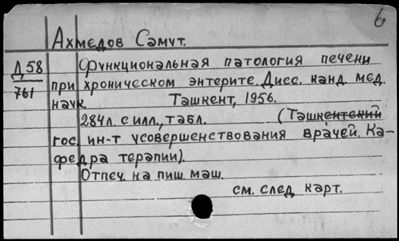 б
Ахмедов Самут.
Д58
761
Функциональная патология печени
при хроническом энтерите. Дисс. канд. мед.
наук. Ташкент, 1956.
284л. с илл., табл. (Ташкентский
гос. ин-т усовершенствования врачей. Ка-
федра терапии).
Отпеч. на пиш. маш.
см. след. карт.